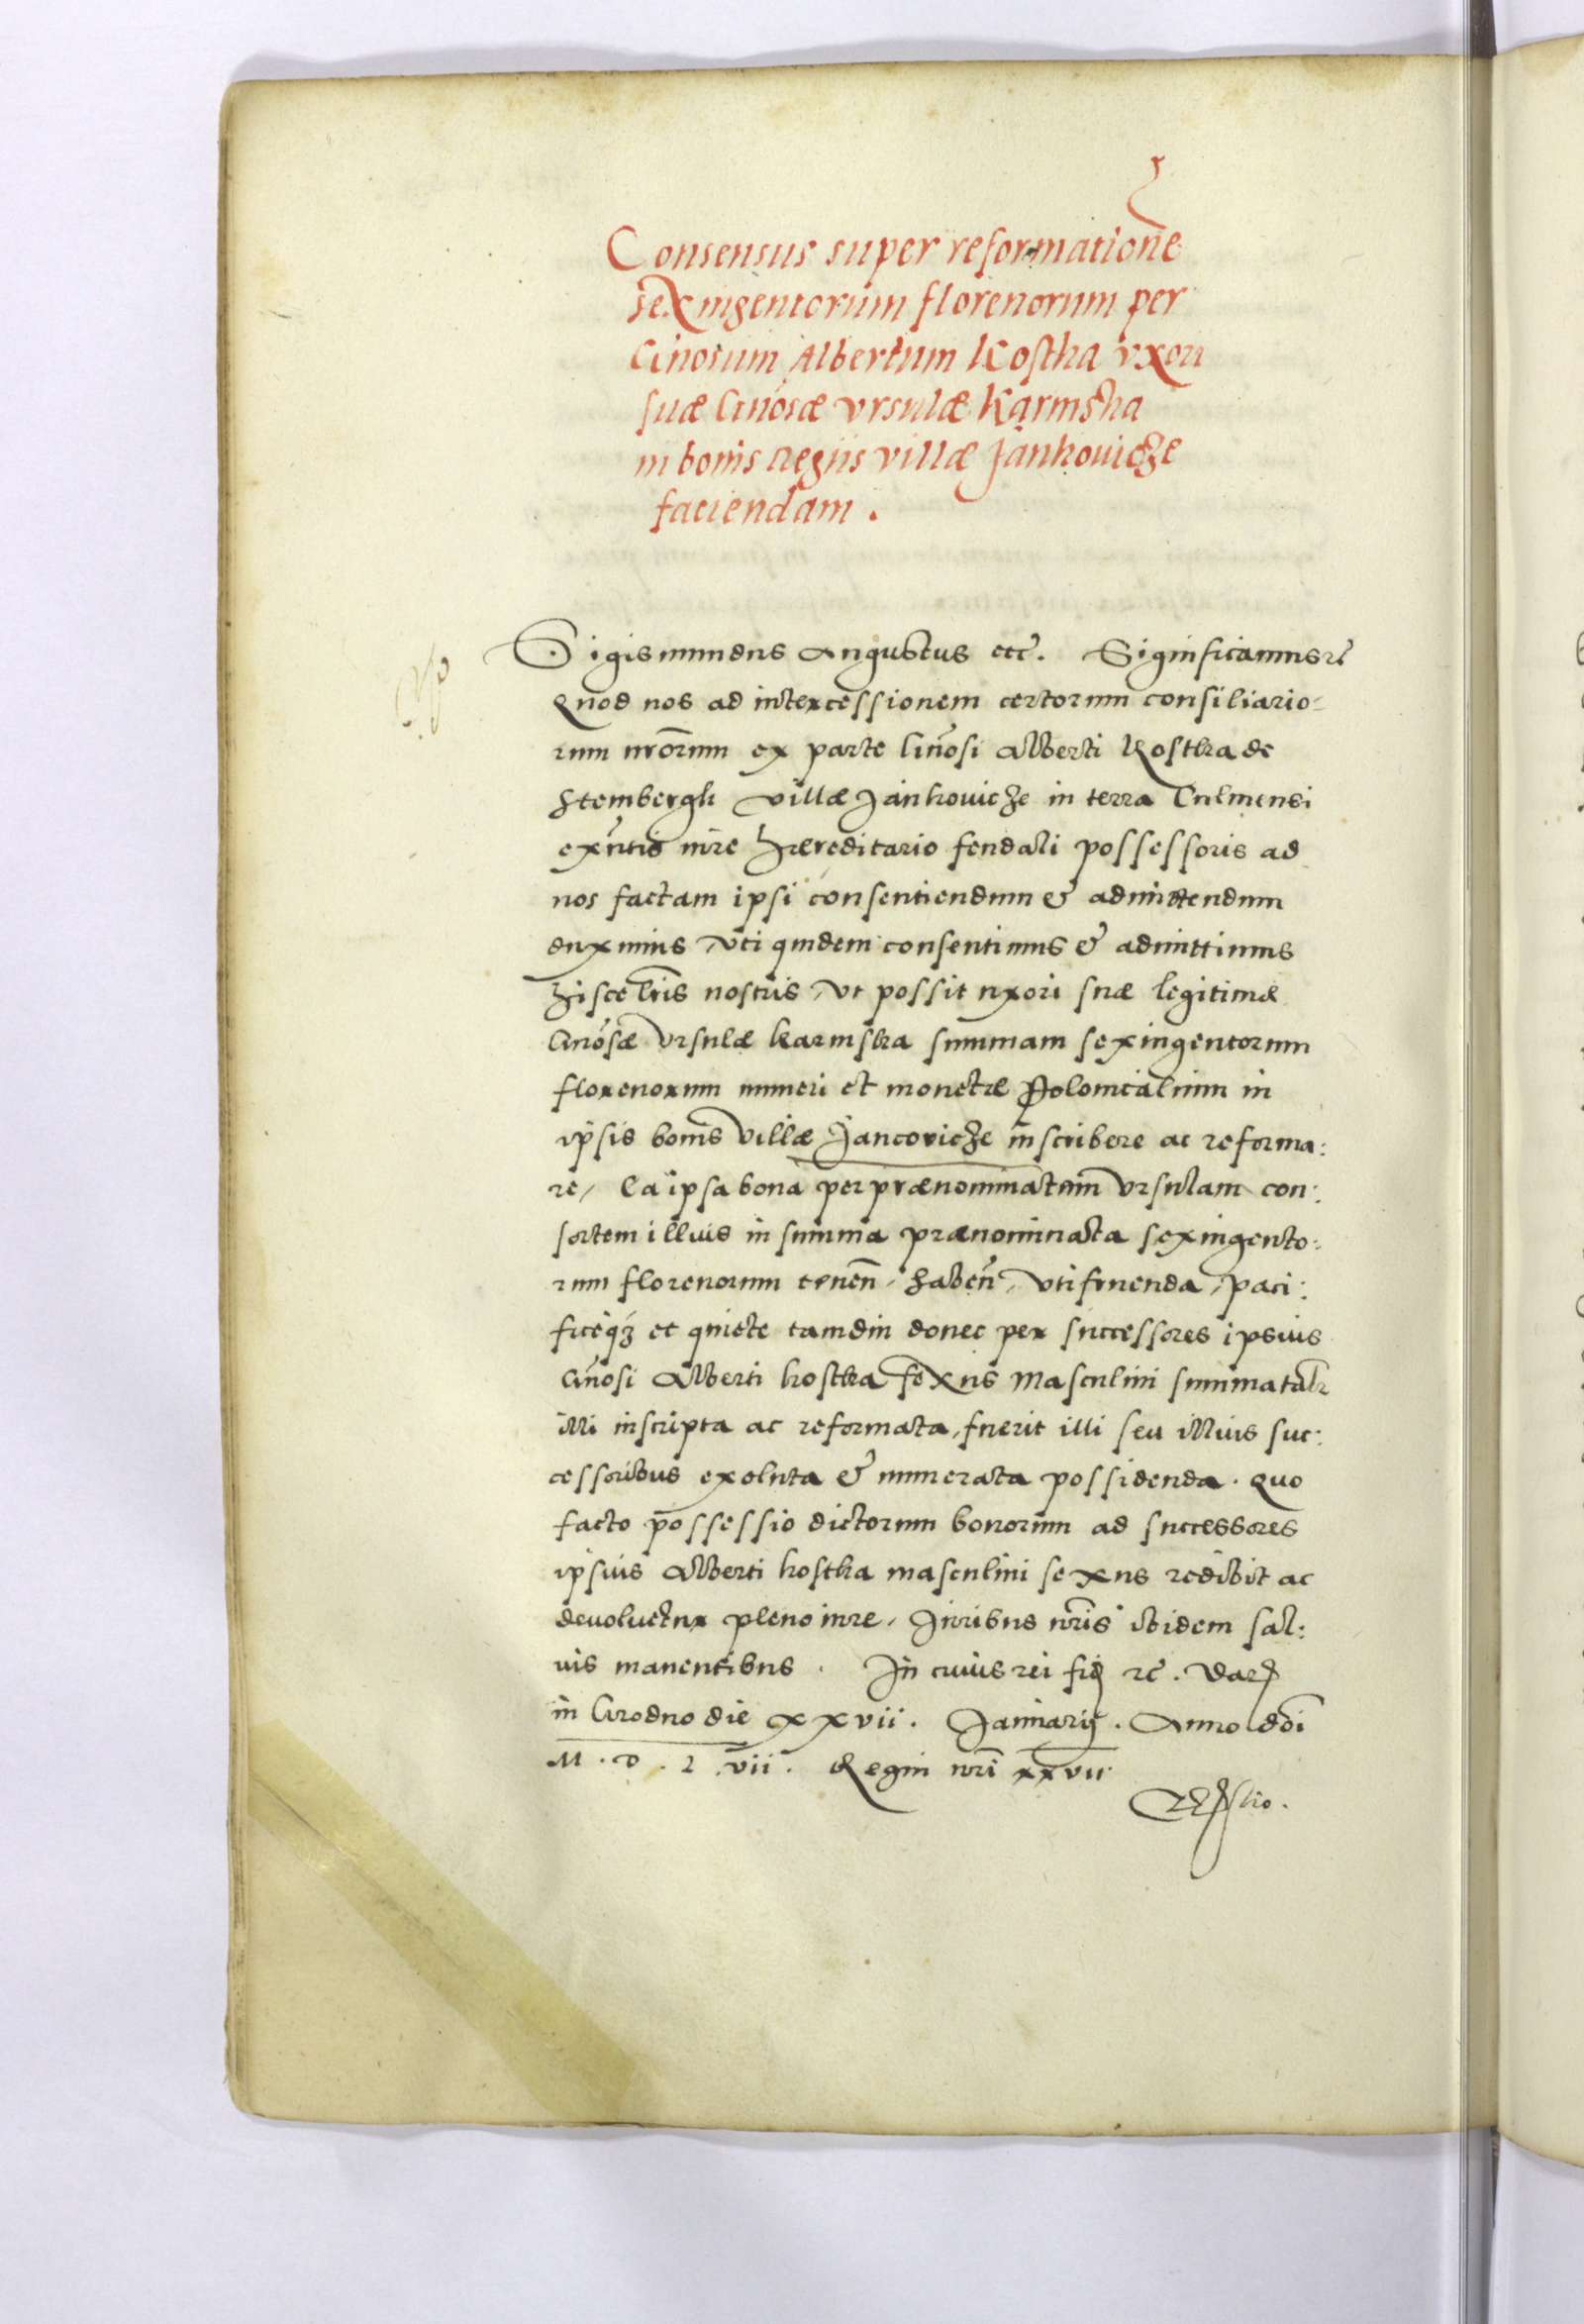 Consensus super reformatione
sexingentorum florenorum per
Gnosum Albertum Kostka vxori
suæ Gnosæ Vrsulæ Karnıska
in bonis Regiis villæ Jankouicze
faciendam.
Sigismundus Augustus etc. Significamus etc
Quod nos ad intercessionem certorum consiliario-
rum nrorum ex parte Gnosi Alberti Kostka de
Stembergk villæ Jankouicze in terra Culmensi
exntis iure hæreditario feudali possessoris ad
nos factam ipsi consentiendum & admittendum
duximus vti quidem consentimus & admittimus
hisce lris nostris, vt possit uxori suæ legitimæ
Gnosæ Vrsulæ Karnıska summam sexingentorum
florenorum numeri et monetæ Polonicalium in
ipsis bonis villæ Jancovicze inscribere ac reforma:
re, Ea ipsa bona per prænominatam Vrsulam con:
sortem illius in summa prænominata sexingento:
rum florenorum tenen, haben, vtifruenda, paci:
ficeque et quiete tamdiu donec per successores ipsius
Gnosi Alberti Kostka sexus Masculini summa talr
illi inscripta ac reformata, fuerit illi seu illius suc:
cessoribus exoluta & numerata possidenda. Quo
facto possessio dictorum bonorum ad successores
ipsius Alberti Kostka masculini sexus redibit ac
deuoluetur pleno iure, Juribus nris ibidem sal:
uis manentibus. In cuius rei fid etc. Dat
in Grodno die xxvii. Januarij. Anno dni
M.D.L.vii. Regni nri xxvii